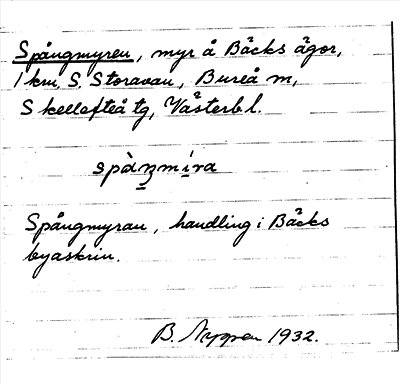 Spångmyren, myr å Bäcks ägor,
1 km. S. Storavan, Bureå sn,
Skellefteå tg, Västerb l.
spàŋmi̇́ra
Spångmyran, handling i Bäcks
byaskrin.
B. Nyman 1932.